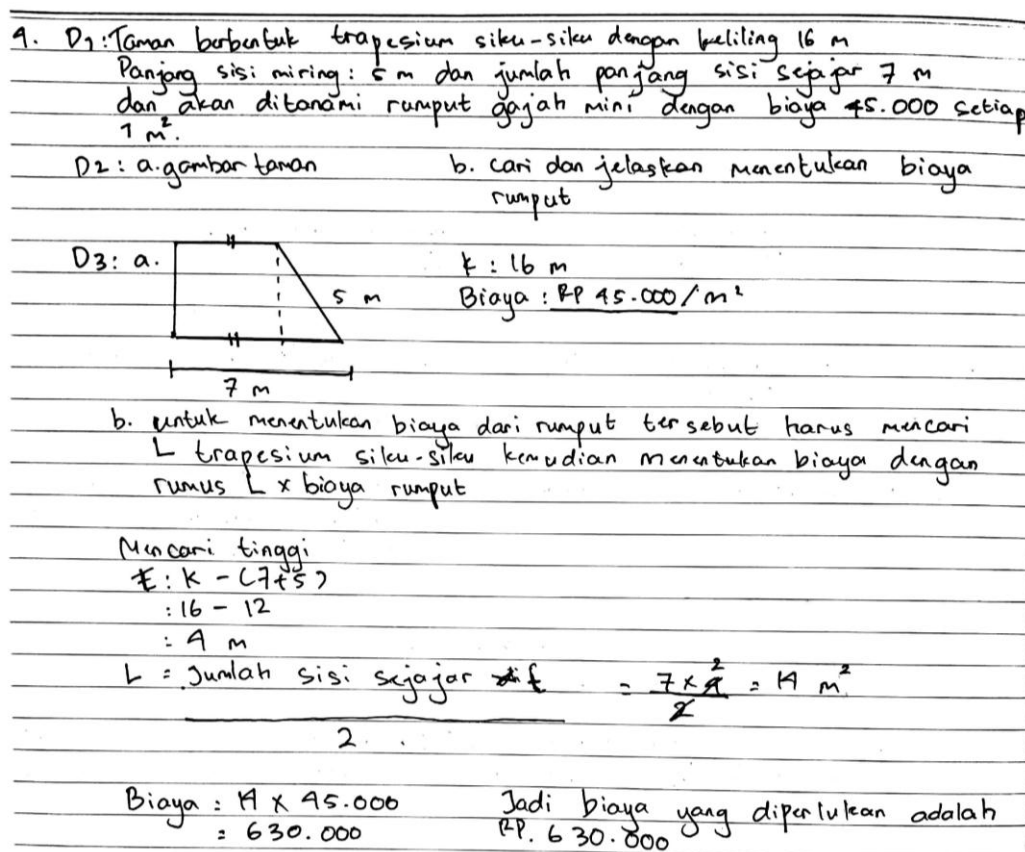 4. D1: Taman berbentuk trapesium siku-siku dengan keliling 16 m
Panjang sisi miring: 5 m dan jumlah panjang sisi sejajar 7 m
dan akan ditanami rumput gajah mini dengan biaya 45.000 setiap
1 m².
D2: a. gambar taman b. cari dan jelaskan menentukan biaya
rumput
D3: a. k : 16 m
5 m Biaya : RP 45.000/m²
7 m
b. untuk menentukan biaya dari rumput tersebut harus mencari
L trapesium siku-siku kemudian menentukan biaya dengan
rumus L x biaya rumput
Mencari tinggi
t : k - (7+5)
: 16 - 12
: 4 m
L = Jumlah sisi sejajar x t = 7 x 4 2 = 14 m²
2 2
Biaya : 14 x 45.000 Jadi biaya yang diperlukan adalah
= 630.000 RP. 630.000